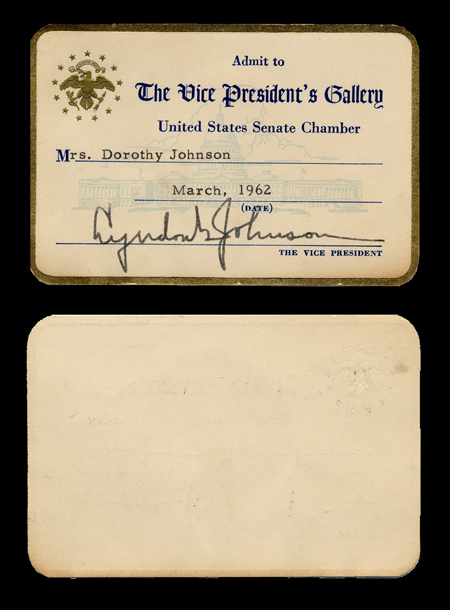 Admit to
The Vice President's Gallery
United States Senate Chamber
Mrs. Dorothy Johnson
March, 1962
(DATE)
Lyndon B Johnson
THE VICE PRESIDENT